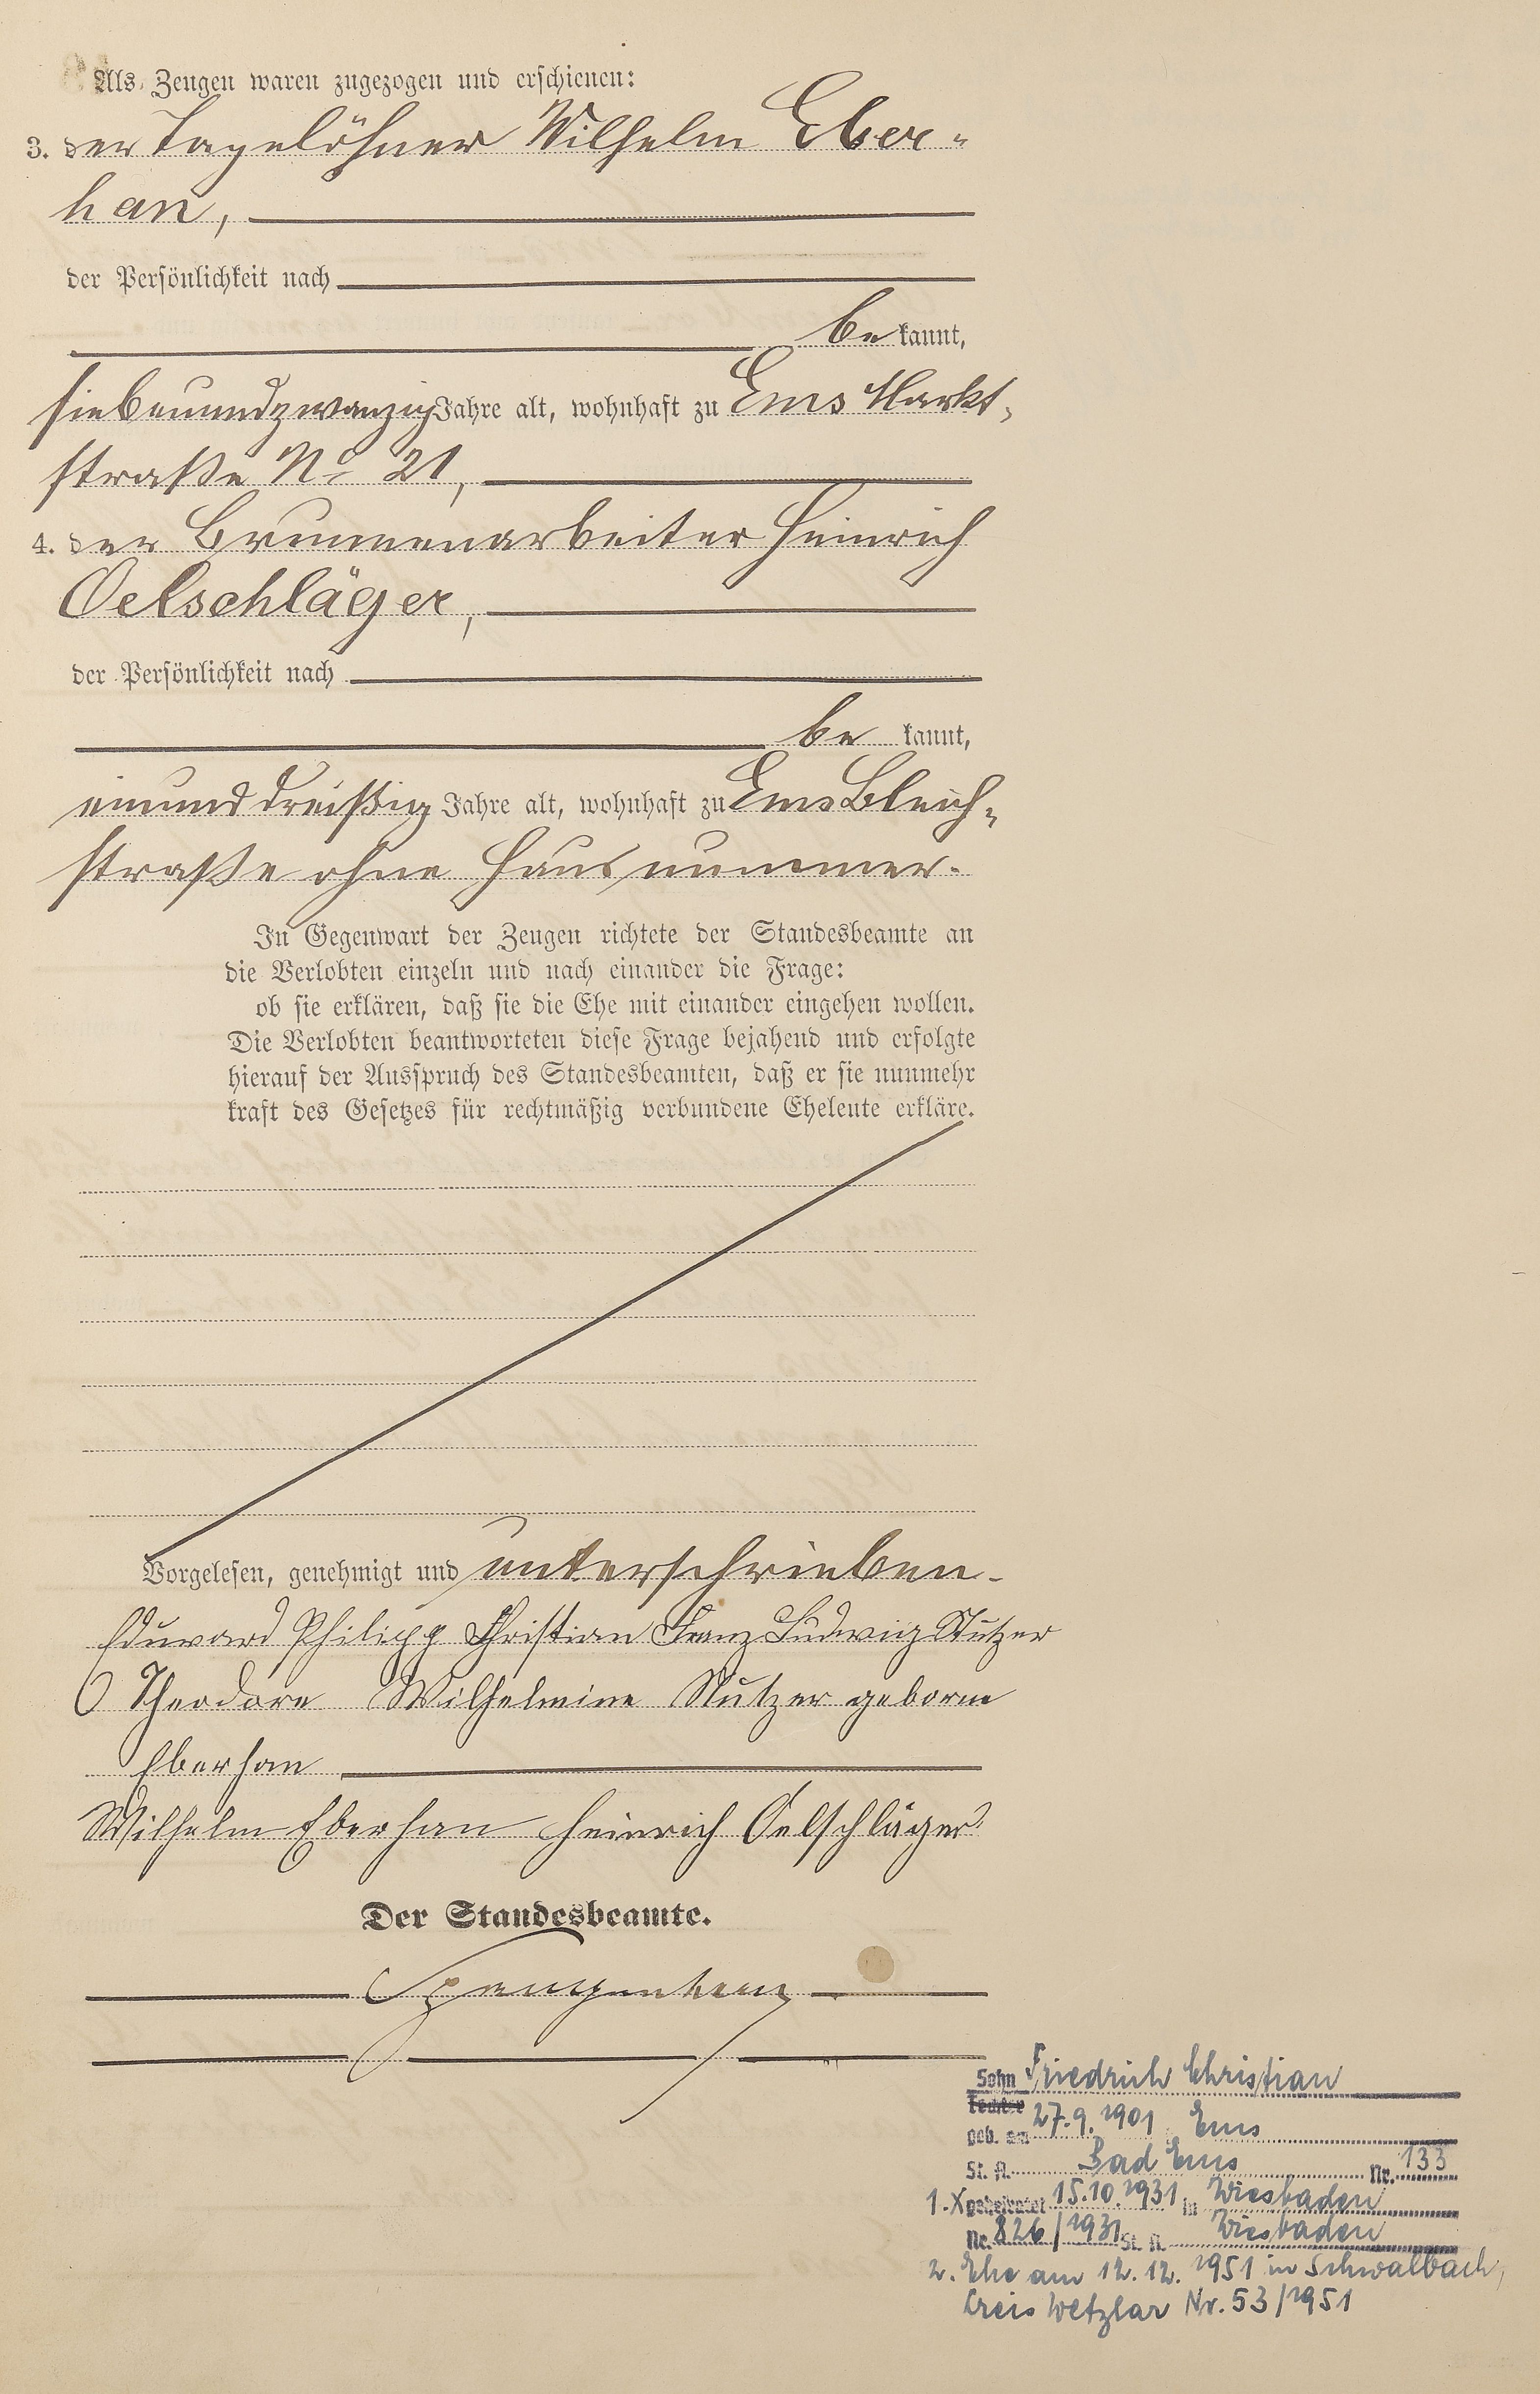 Als Zeugen waren zugezogen und erschienen:
3. der Tagelöhner Wilhelm Eber-
han,
der Persönlichkeit nach
be kannt,
siebenundzwanzig Jahre alt, wohnhaft zu Ems Markt-
straße No 21,
4. der Brunnenarbeiter Heinrich
Oelschläger,
der Persönlichkeit nach
be kannt,
einunddreißig Jahre alt, wohnhaft zu Ems Bleich-
straße ohne Hausnummer.
In Gegenwart der Zeugen richtete der Standesbeamte an
die Verlobten einzeln und nach einander die Frage:
ob sie erklären, daß sie die Ehe mit einander eingehen wollen.
Die Verlobten beantworteten diese Frage bejahend und erfolgte
hierauf der Ausspruch des Standesbeamten, daß er sie nunmehr
kraft des Gesetzes für rechtmäßig verbundene Eheleute erkläre.
Vorgelesen, genehmigt und unterschrieben.
Eduward Philipp Christian Franz Ludwig Stutzer
Theodore Wilhelmine Stutzer geborne
Eberhan
Wilhelm Eberhan Heinrich Oelschläger
Der Standesbeamte.
Spangenberg
Sohn Friedrich Christian
Tochter
geb. am 27.9.1901 Ems
St. A. Bad Ems Nr. 133
1. X geheiratet 15.10.1931 in Wiesbaden
Nr. 826/1931 St. A. Wiesbaden
2. Ehe am 12.12.1951 in Schwalbach,
Kreis Wetzlar Nr. 53/1951